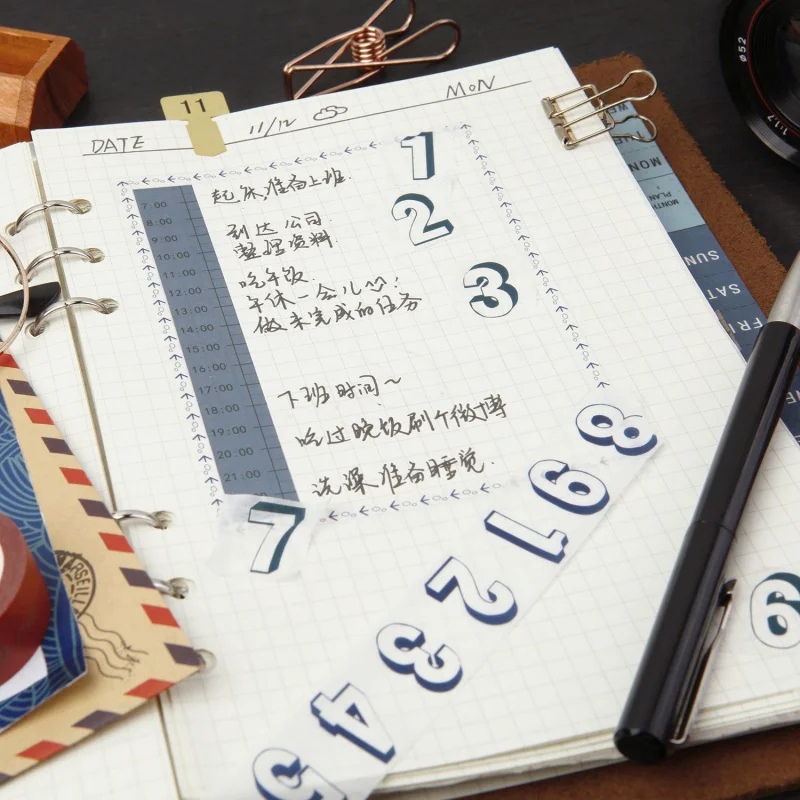 11
DATE 11/12 MON
1
2
3
7:00
8:00
9:00
10:00
11:00
12:00
13:00
14:00
15:00
16:00
17:00
18:00
19:00
20:00
21:00
起床,准备上班.
到达公司
整理资料.
吃午饭.
午休一会儿
做未完成的任务
下班时间~
吃过晚饭刷个微博
洗澡准备睡觉.
7
8
9
1
2
3
4
5
9
MON
MONTH PLAN
SUN
SAT
FRI
ø52
1:1.7